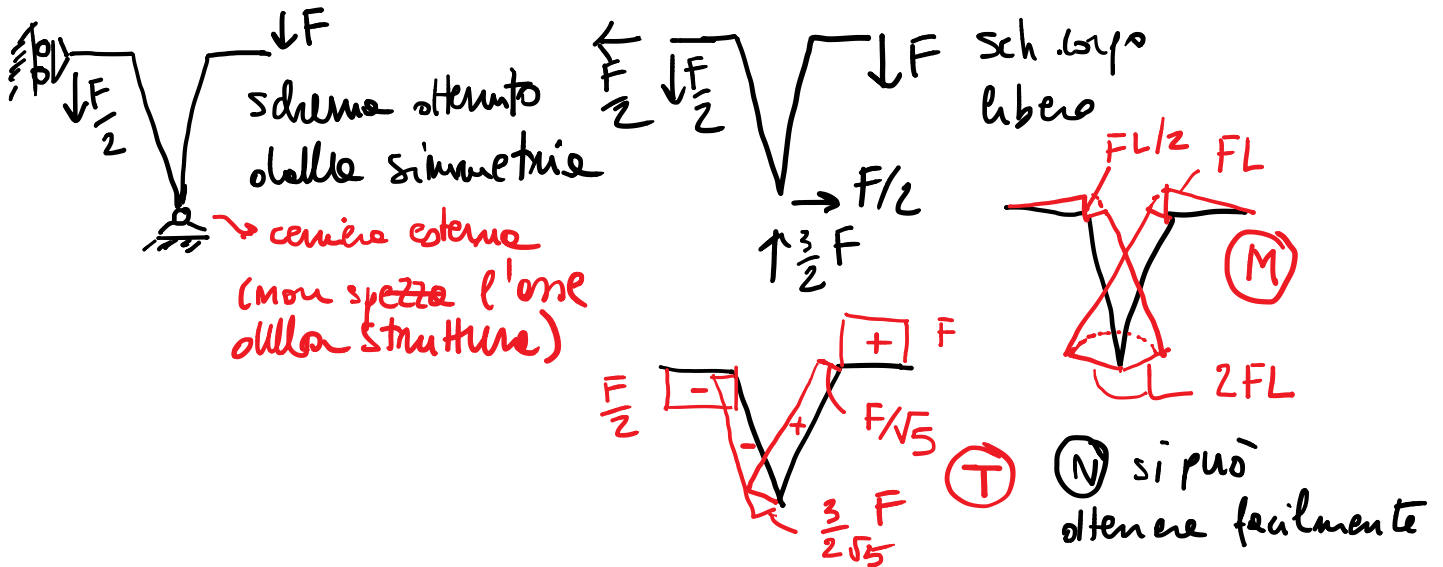 F
F/2
schema ottenuto
dalla simmetria
cerniera esterna
(non spezza l'asse
della struttura)
F/2
F/2
F
sch. corpo
libero
F/2
3/2 F
FL/2
FL
M
2FL
F/2
-
-
+
+
F
F/√5
3/2 F/√5
T
N si può
ottenere facilmente